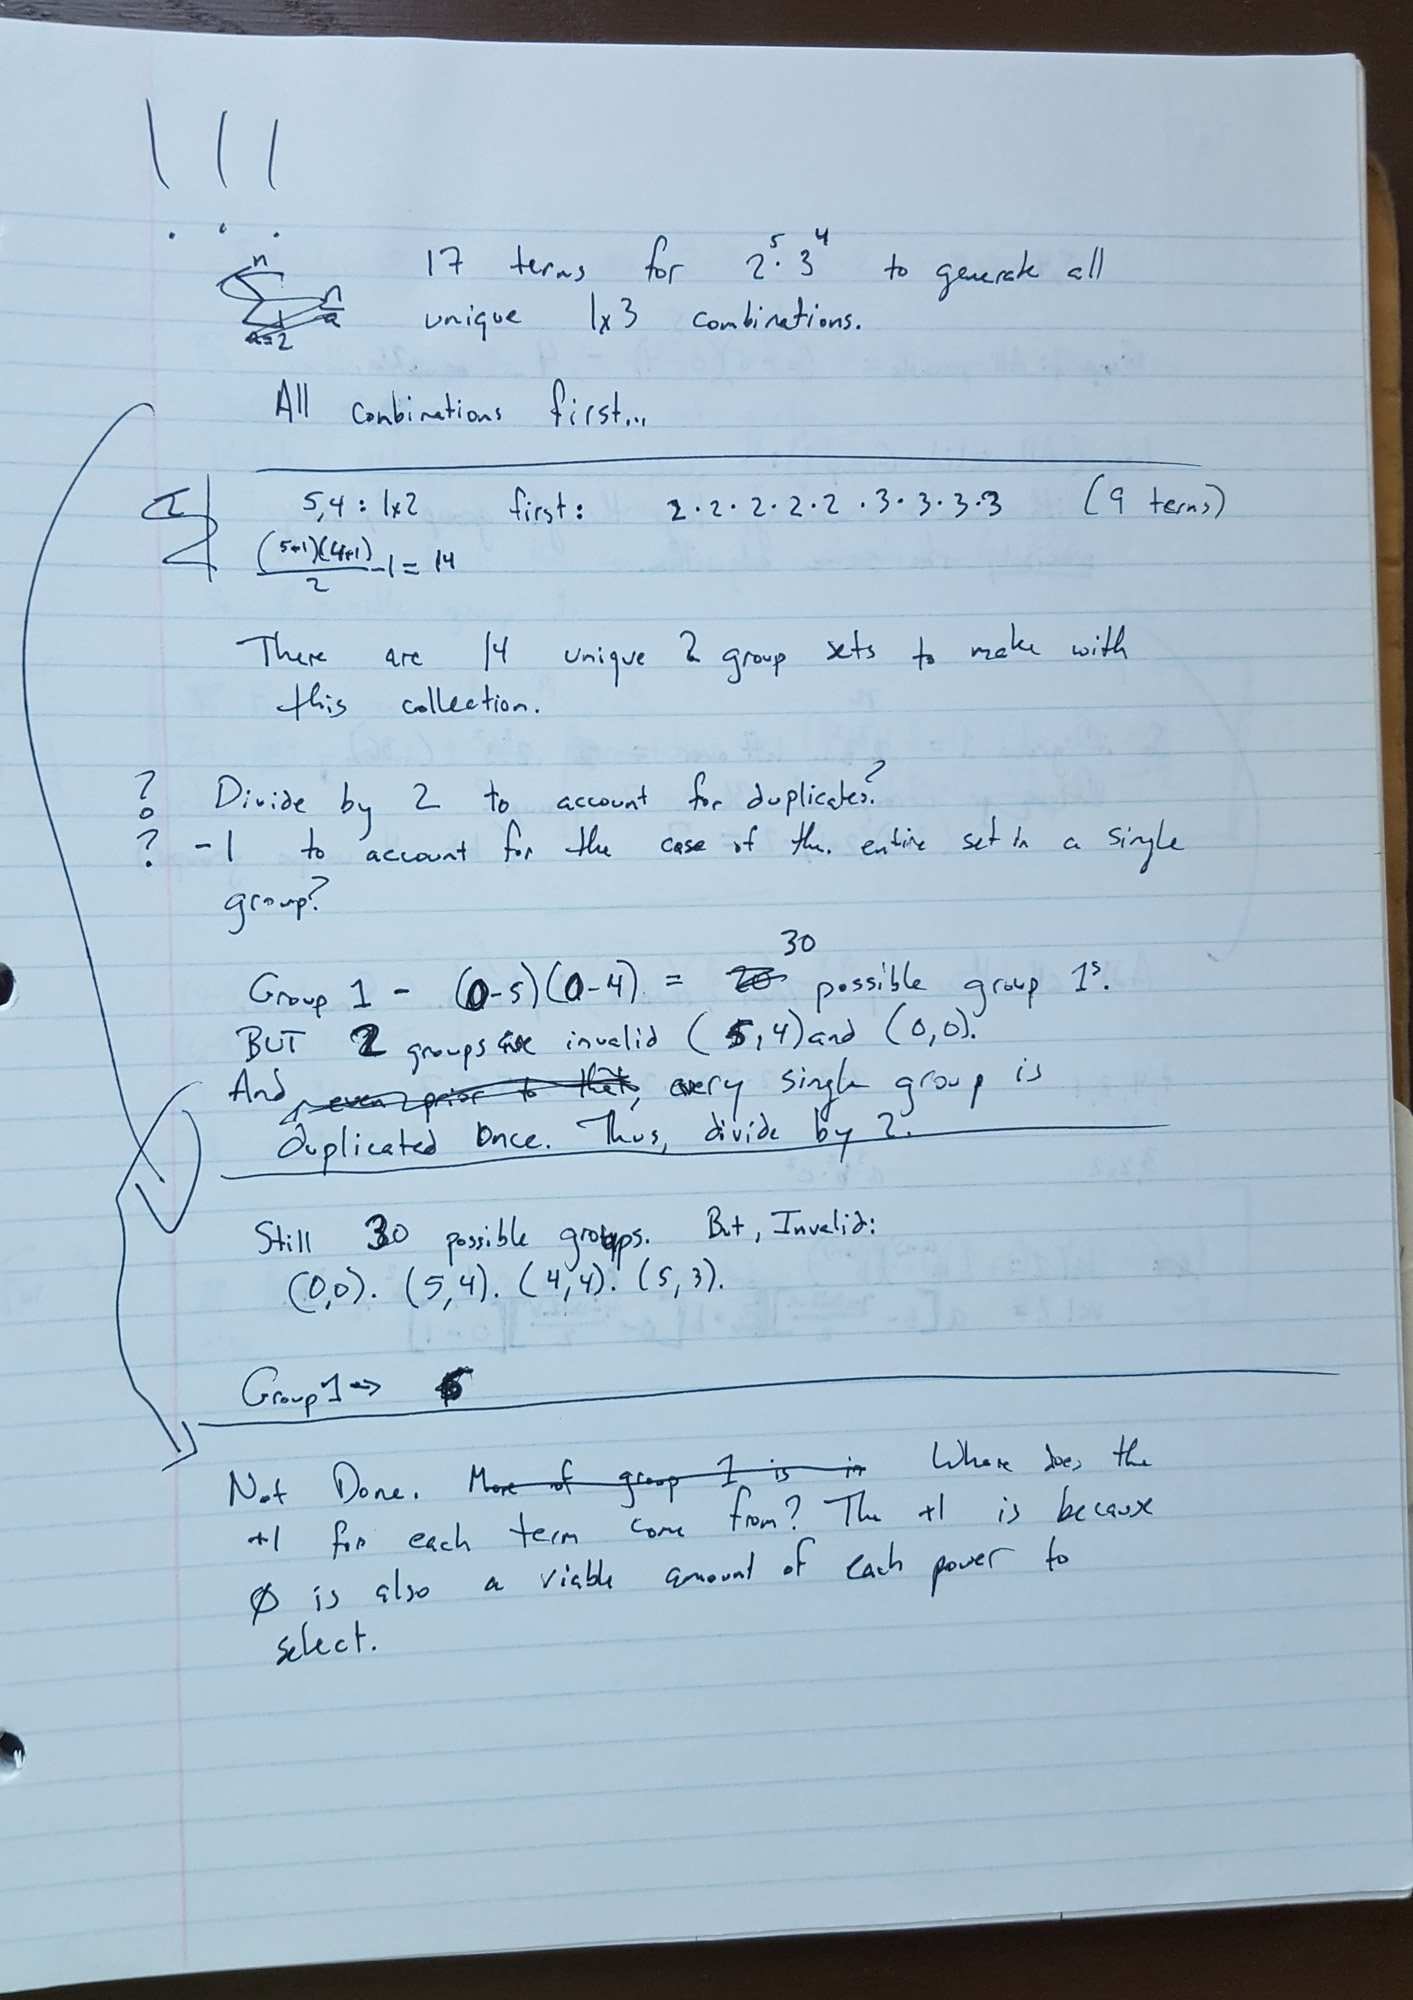 ! ! !
17 terms for 2^5 · 3^4 to generate all
unique 1x3 combinations.
n
n
a=2
2
All combinations first...
5,4 : 1x2 first: 2·2·2·2·2·3·3·3·3 (9 terms)
(5+1)(4+1)/2 - 1 = 14
There are 14 unique 2 group sets to make with
this collection.
? Divide by 2 to account for duplicates?
? -1 to account for the case of the entire set in a single
group?
30
Group 1 - (0-5)(0-4) = possible group 1s.
BUT 2 groups are invalid (5,4) and (0,0).
And even prior to that, every single group is
duplicated once. Thus, divide by 2.
Still 30 possible groups. But, Invalid:
(0,0). (5,4). (4,4). (5,3).
Group 1 →
Not Done. More of group 1 is in Where does the
+1 for each term come from? The +1 is because
Ø is also a viable amount of each power to
select.